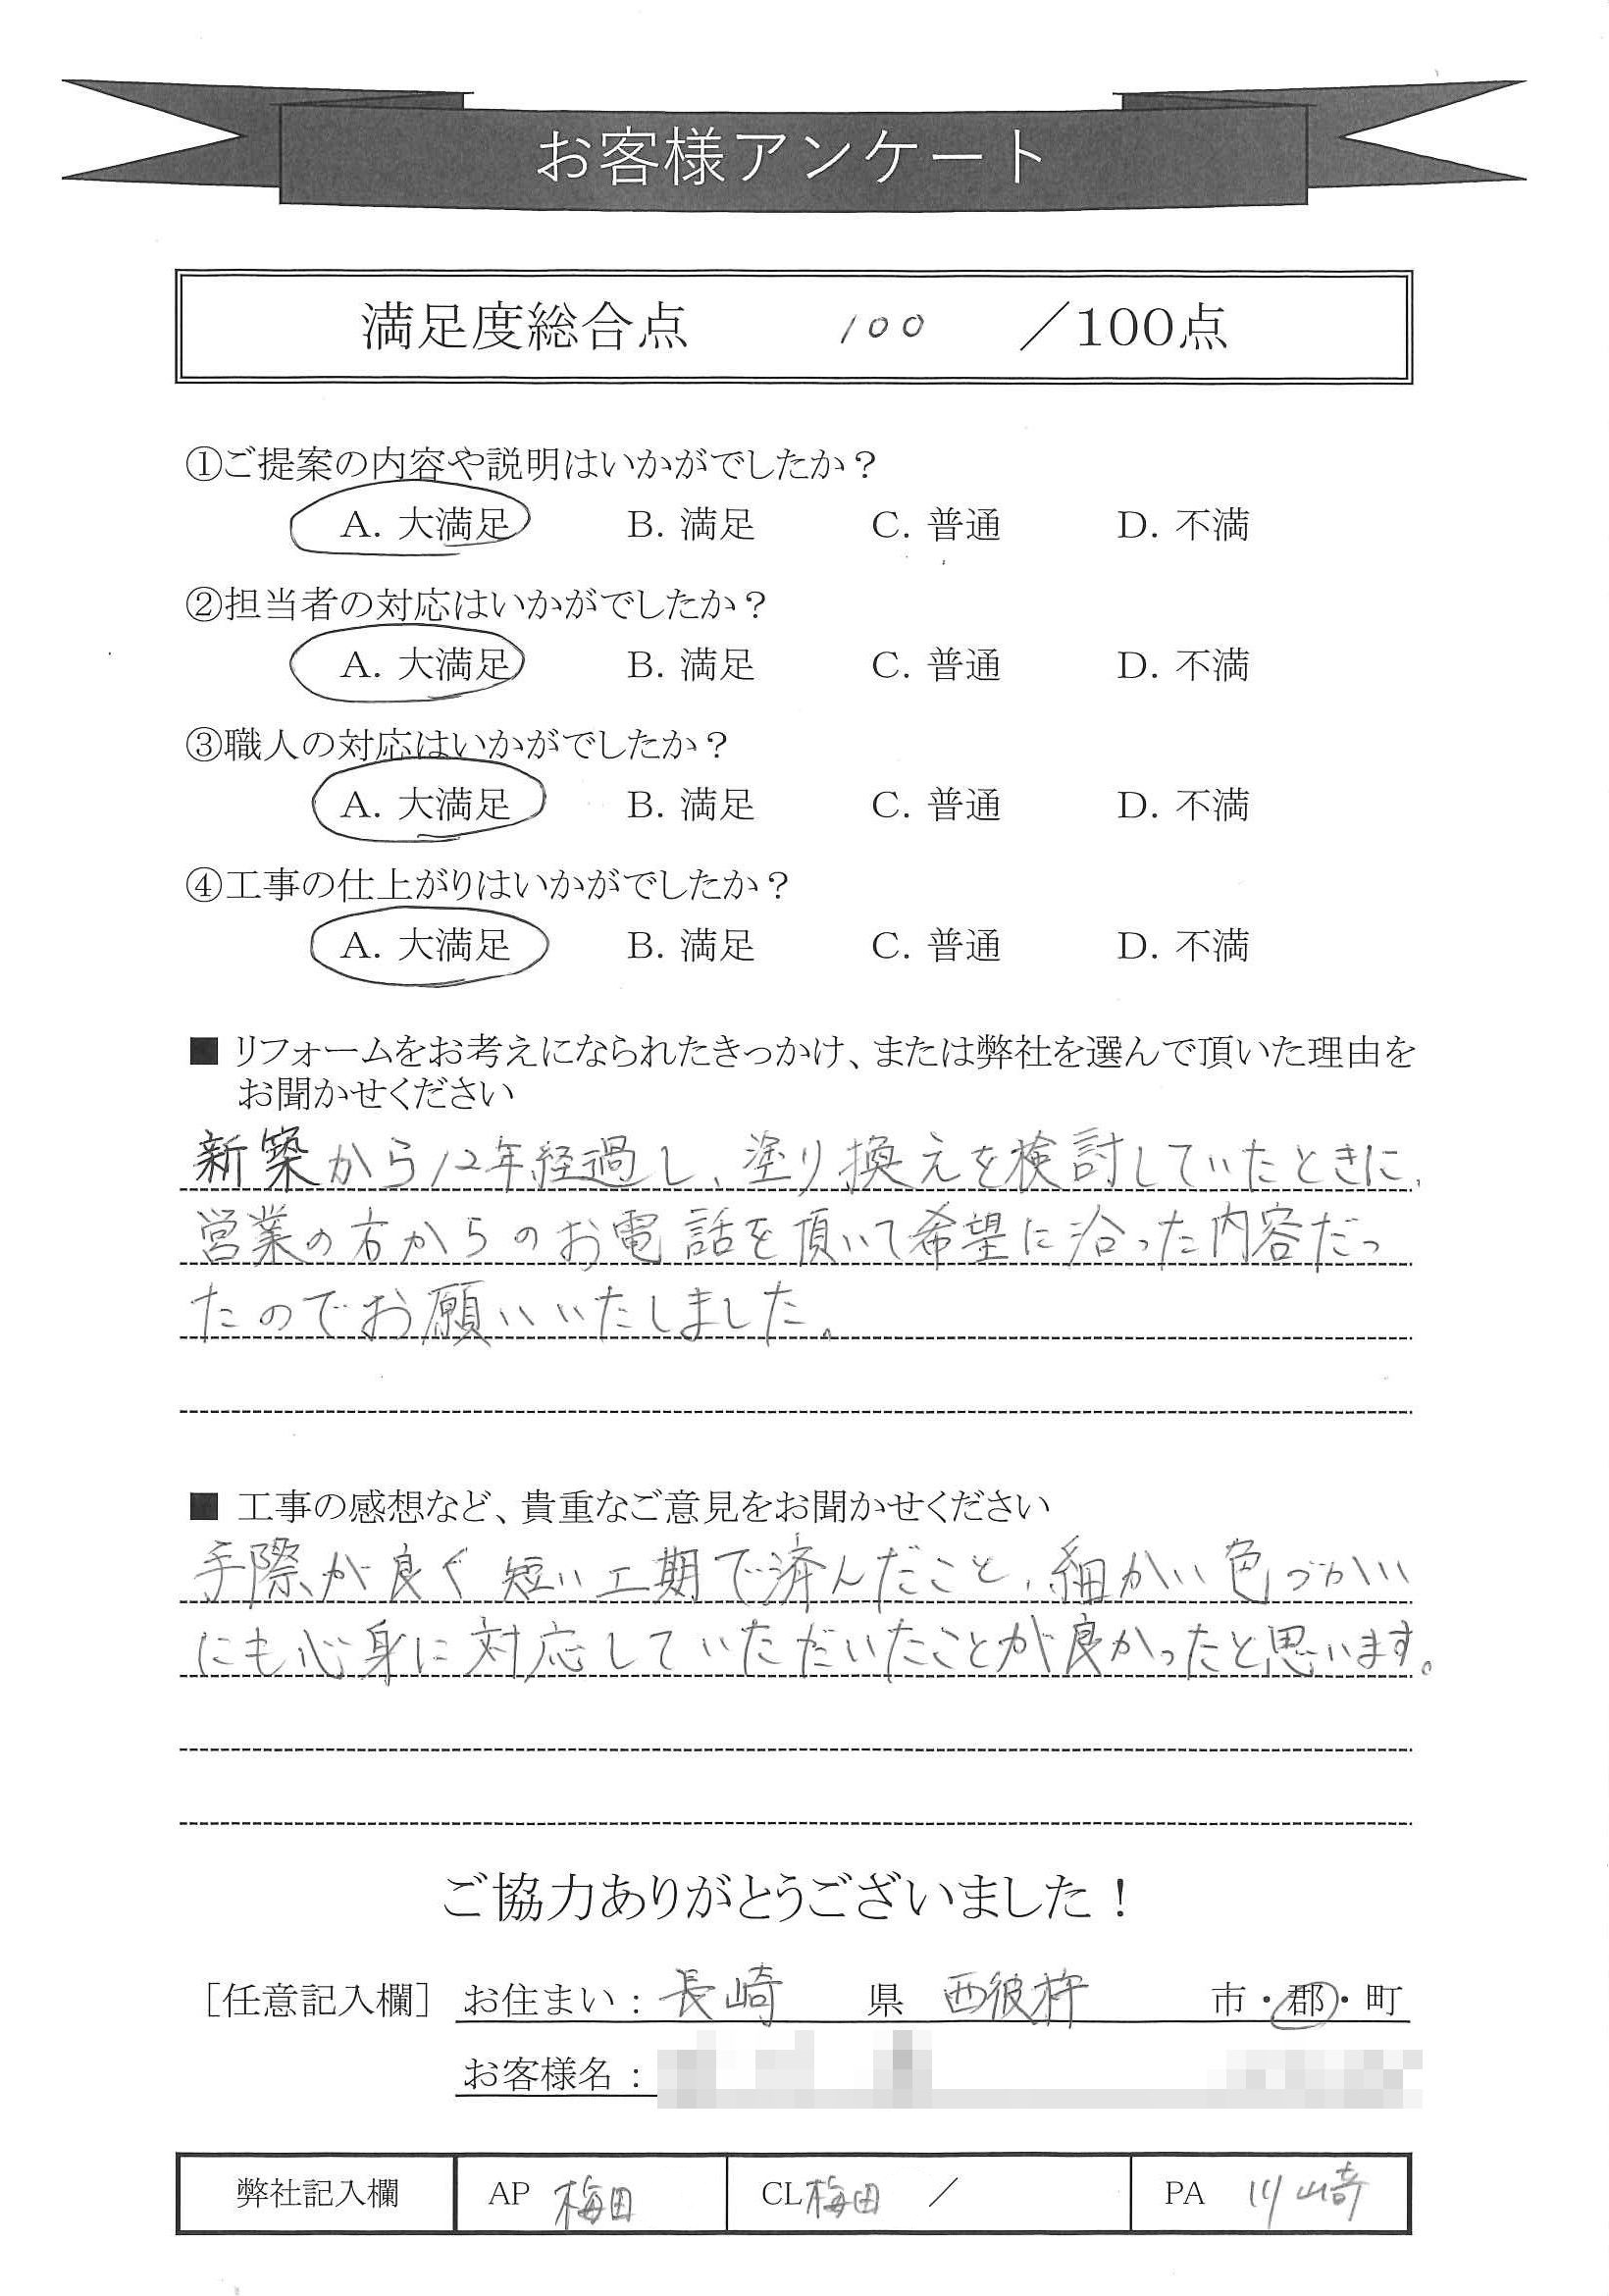 お客様アンケート
満足度総合点 100 ／100点
①ご提案の内容や説明はいかがでしたか？
A. 大満足 B. 満足 C. 普通 D. 不満
②担当者の対応はいかがでしたか？
A. 大満足 B. 満足 C. 普通 D. 不満
③職人の対応はいかがでしたか？
A. 大満足 B. 満足 C. 普通 D. 不満
④工事の仕上がりはいかがでしたか？
A. 大満足 B. 満足 C. 普通 D. 不満
■ リフォームをお考えになられたきっかけ、または弊社を選んで頂いた理由を
お聞かせください
新築から12年経過し、塗り換えを検討していたときに、
営業の方からのお電話を頂いて希望に沿った内容だっ
たのでお願いいたしました。
■ 工事の感想など、貴重なご意見をお聞かせください
手際が良く短い工期で済んだこと、細かい色づかい
にも心身に対応していただいたことが良かったと思います。
ご協力ありがとうございました！
［任意記入欄］ お住まい：長崎 県 西彼杵 市・郡・町
お客様名：
弊社記入欄 AP 梅田 CL 梅田 ／ PA 川崎